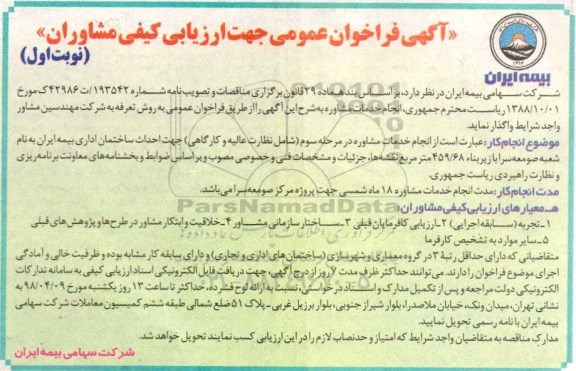 «آگهی فراخوان عمومی جهت ارزیابی کیفی مشاوران»
(نوبت اول)
بیمه ایران
شرکت سهامی بیمه ایران در نظر دارد، بر اساس بند هـ ماده ۲۹ قانون برگزاری مناقصات و تصویب نامه شماره ۱۹۳۵۴۲/ت ۴۲۹۸۶ک مورخ
۱۳۸۸/۱۰/۰۱ ریاست محترم جمهوری، انجام خدمات مشاوره به شرح این آگهی را از طریق فراخوان عمومی به روش تعرفه به شرکت مهندسین مشاور
واجد شرایط واگذار نماید.
موضوع انجام کار: عبارت است از انجام خدمات مشاوره در مرحله سوم (شامل نظارت عالیه و کارگاهی) جهت احداث ساختمان اداری بیمه ایران به نام
شعبه صومعه سرا با زیربناء ۴۵۹/۶۸ متر مربع نقشه‌ها، جزئیات و مشخصات فنی و خصوصی مصوب و بر اساس ضوابط و بخشنامه های معاونت برنامه ریزی
و نظارت راهبردی ریاست جمهوری.
مدت انجام کار: مدت انجام خدمات مشاوره ۱۸ ماه شمسی جهت پروژه مرکز صومعه سرا می‌باشد.
هـ معیارهای ارزیابی کیفی مشاوران:
۱- تجربه (سابقه اجرایی) ۲- ارزیابی کارفرمایان قبلی ۳- ساختار سازمانی مشاور ۴- خلاقیت و ابتکار مشاور در طرح‌ها و پژوهش های قبلی
۵- سایر موارد به تشخیص کارفرما
متقاضیانی که دارای حداقل رتبهٔ ۳ در گروه معماری و شهرسازی (ساختمان های اداری و تجاری) و دارای سابقه کار مشابه بوده و ظرفیت خالی و آمادگی
اجرای موضوع فراخوان را دارند، می‌توانند حداکثر ظرف مدت ۷ روز از درج آگهی، جهت دریافت فایل الکترونیکی اسناد ارزیابی کیفی به سامانه تدارکات
الکترونیکی دولت مراجعه و پس از تکمیل مدارک و اسناد درخواستی، نسبت به ارائه لوح فشرده، حداکثر تا ساعت ۱۲ روز یکشنبه مورخ ۹۸/۰۴/۰۹ به
نشانی تهران، میدان ونک، خیابان ملاصدرا، بلوار شیراز جنوبی، بلوار برزیل غربی- پلاک ۵۱ ضلع شمالی طبقه ششم کمیسیون معاملات شرکت سهامی
بیمه ایران با نامه رسمی تحویل نمایید.
مدارک مناقصه به متقاضیان واجد شرایط که امتیاز و حدنصاب لازم را در این ارزیابی کسب نمایند تحویل خواهد شد.
شرکت سهامی بیمه ایران
ParsNamadData